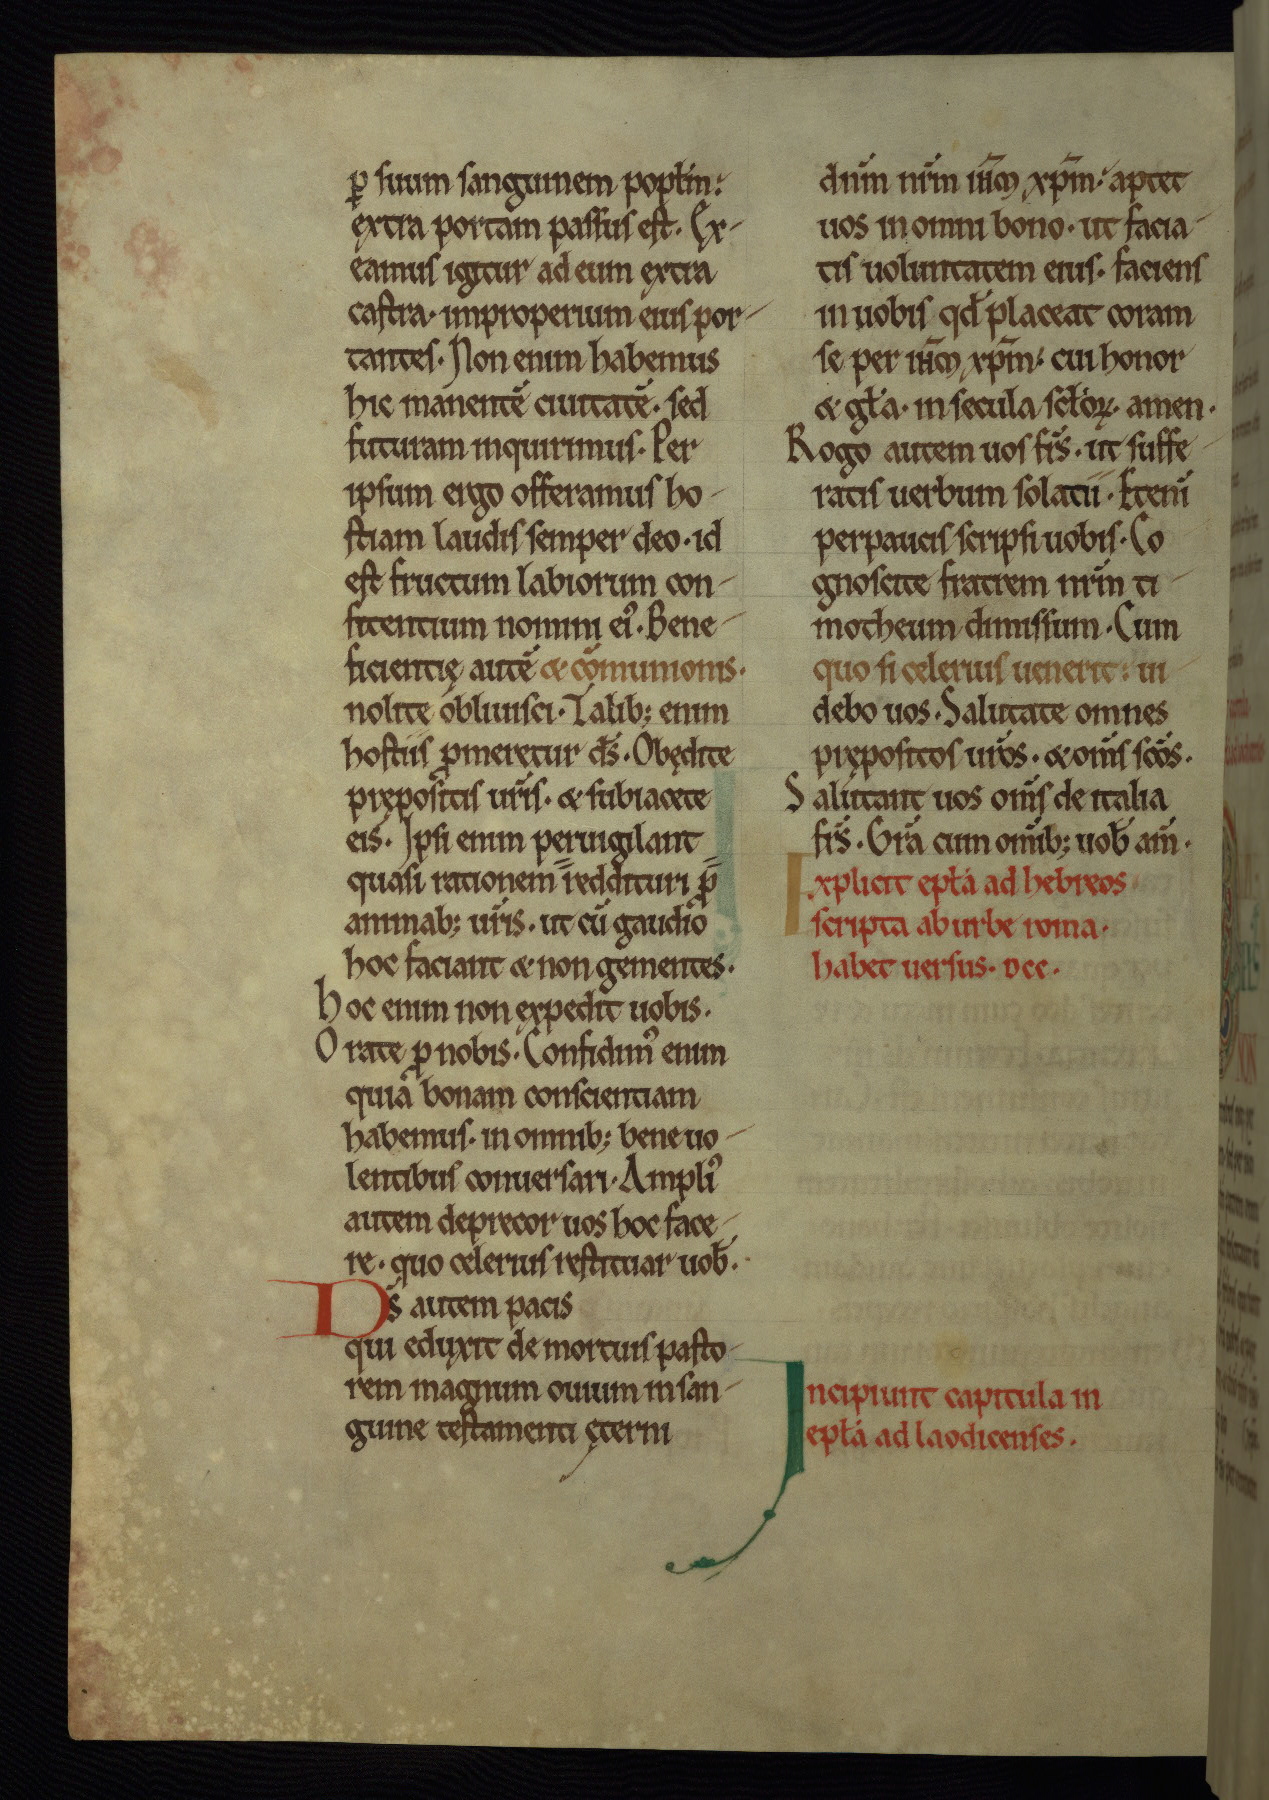 ꝑ suum sanguinem popłm:
extra portam passus est. Ex-
eamus igitur ad eum extra
castra. improperium eius por-
tantes. Non enim habemus
hic manentē ciuitatē. sed
futuram inquirimus. Per
ipsum ergo offeramus ho-
stiam laudis semper deo. id
est fructum labiorum con-
fitentium nomini ei᾽. Bene-
ficientię autē & cōmunionis.
nolite obliuisci. Talib; enim
hostiis ꝓmeretur d̄s. Obędite
prępositis ur̄is. & subiacete
eis. Ipsi enim peruigilant
quasi rationem reddituri ꝓ
animab; ur̄is. ut cū gaudio
hoc faciant & non gementes.
Hoc enim non expedit uobis.
Orate ꝓ nobis. Confidim᾽ enim
quia bonam conscientiam
habemus. in omnib; bene uo-
lentibus conuersari. Ampli᾽
autem deprecor uos hoc face-
re. quo celerius restituar uob̄.
D̄s autem pacis
qui eduxit de mortuis pasto-
rem magnum ouium in san-
guine testamenti ęterni
dn̄m nr̄m ih̄m xp̄m: aptet
uos in omni bono. ut facia-
tis uoluntatem eius. faciens
in uobis qđ placeat coram
se per ih̄m xp̄m: cui honor
& gła. in secula scłoꝝ. amen.
Rogo autem uos fr̄s. ut suffe-
ratis uerbum solatii. Etenī
perpaucis scripsi uobis. Co
gnoscite fratrem nr̄m ti-
motheum dimissum. Cum
quo si celerius uenerit: ui-
debo uos. Salutate omnes
prępositos ur̄os. & om̄s sc̄os.
Salutant uos om̄s de italia
fr̄s. Gr̄a cum om̄ib; uob̄ am̄.
Explicit epła ad hebreos
scripta ab urbe roma.
habet uersus. dcc.
Incipiunt capitula in
epła ad laodicenses.